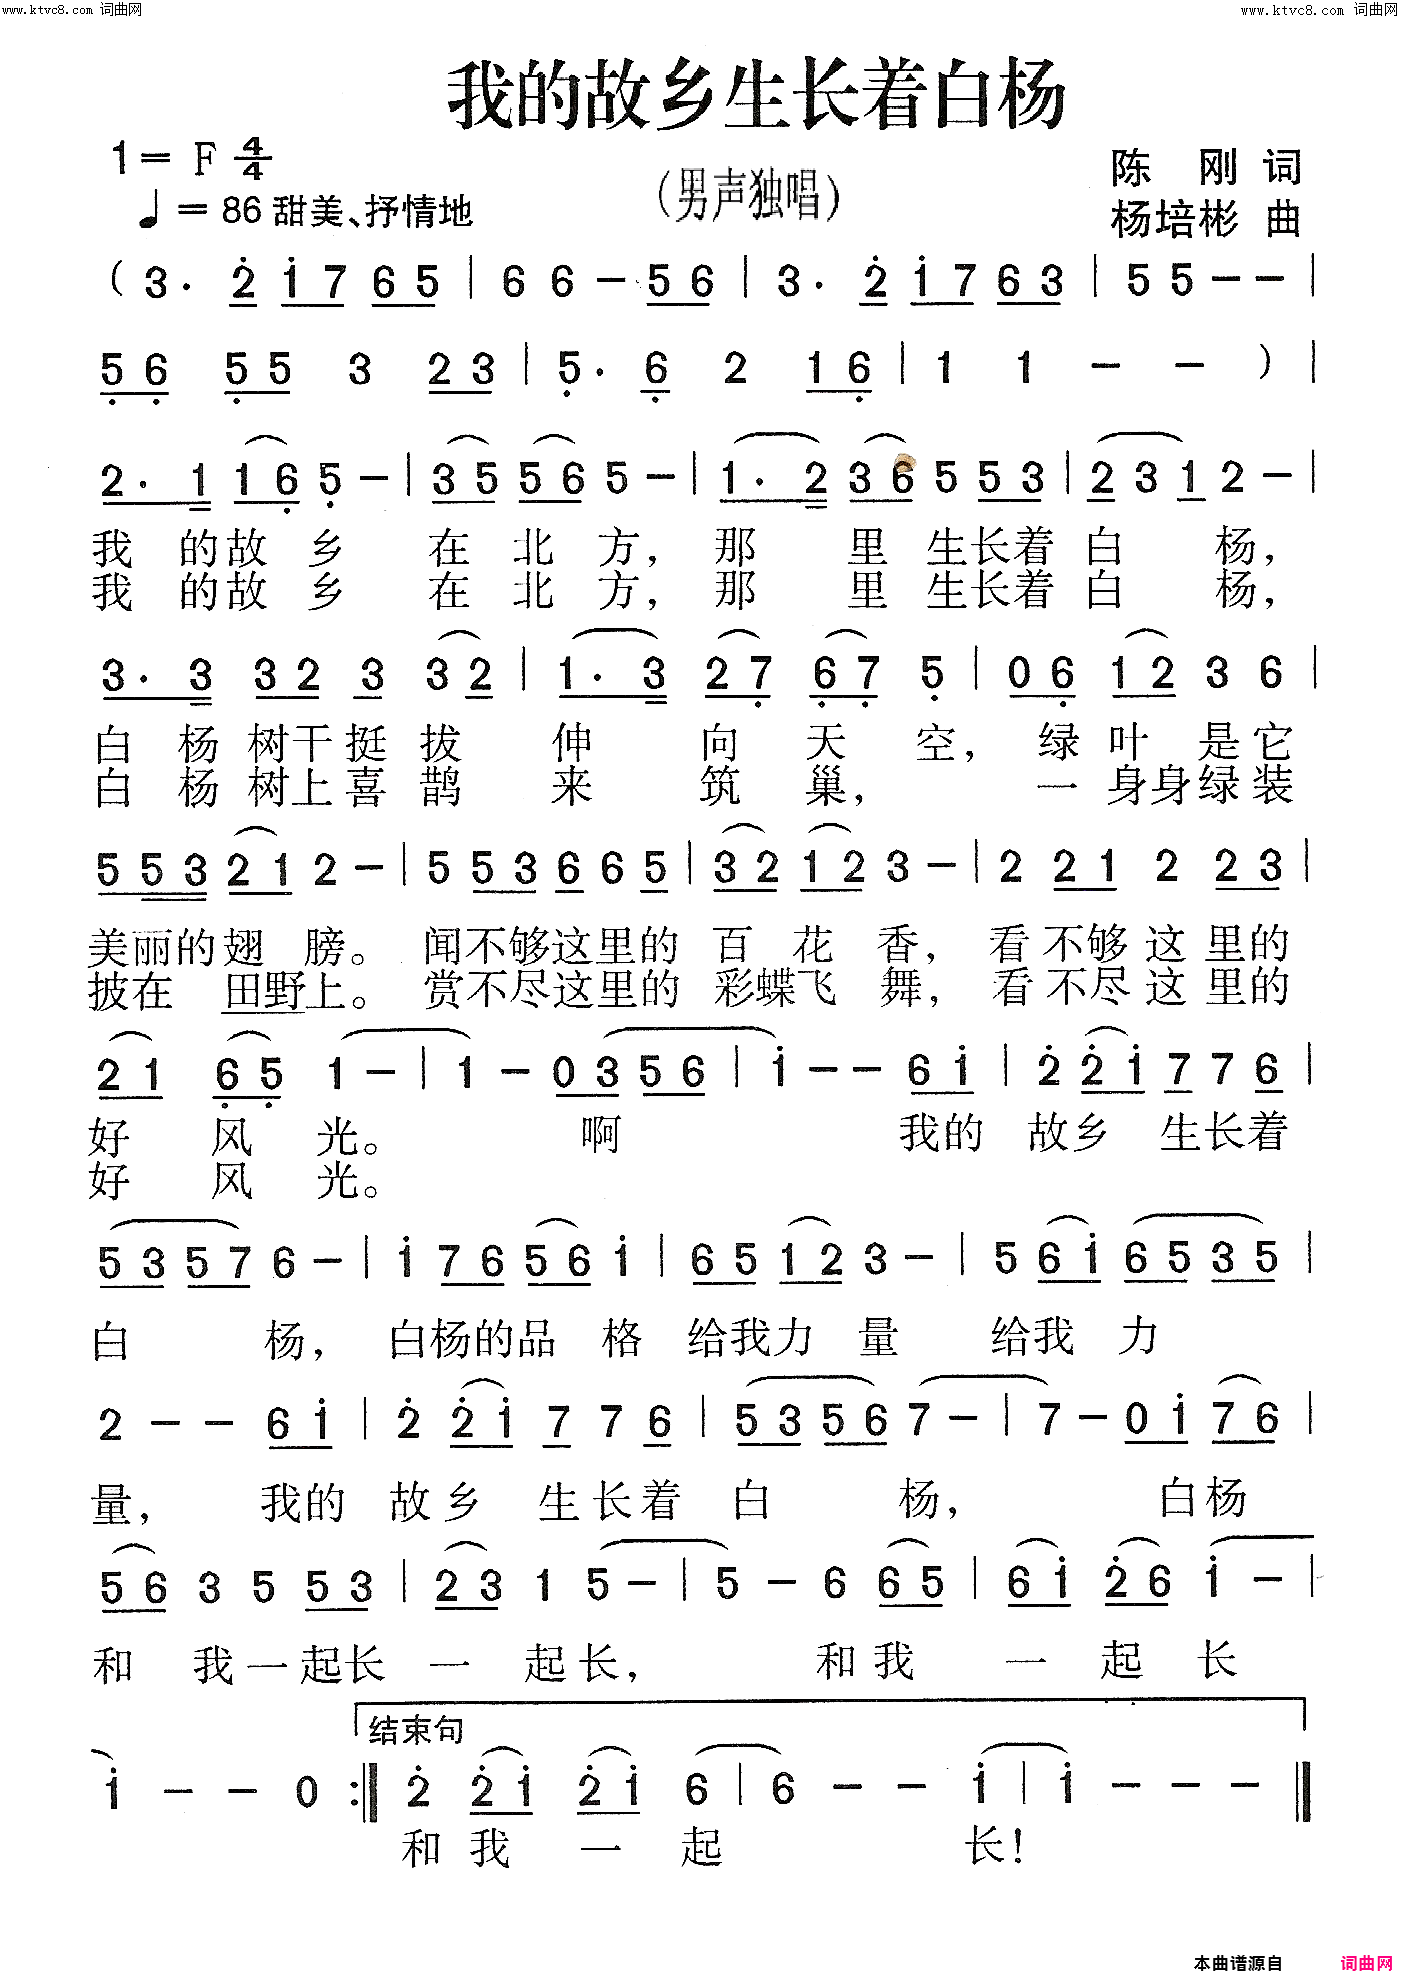 www.ktvc8.com 词曲网 www.ktvc8.com 词曲网
我的故乡生长着白杨
1= F 4/4 陈 刚 词
(男声独唱)
♩= 86 甜美、抒情地 杨培彬 曲
( 3· 2̇ 1̇ 7 6 5 | 6 6 – 5 6 | 3· 2̇ 1̇ 7 6 3 | 5 5 – – |
5̣ 6̣ 5̣ 5 3 2 3 | 5̣· 6̣ 2 1 6̣ | 1 1 – – ) |
2· 1 1 6̣ 5̣ – | 3 5 5 6 5 – | 1· 2 3 6 5 5 3 | 2 3 1 2 – |
我 的故 乡 在 北 方, 那 里 生长着 白 杨,
我 的故 乡 在 北 方, 那 里 生长着 白 杨,
3· 3 3 2 3 3 2 | 1· 3 2 7̣ 6̣ 7̣ 5̣ | 0 6̣ 1 2 3 6 |
白 杨 树干挺 拔 伸 向 天 空, 绿 叶 是它
白 杨 树上喜 鹊 来 筑 巢, 一 身身绿装
5 5 3 2 1 2 – | 5 5 3 6 6 5 | 3 2 1 2 3 – | 2 2 1 2 2 3 |
美丽的翅 膀。 闻不够这里的 百 花 香, 看 不够 这 里的
披在 田野上。 赏不尽这里的 彩蝶飞 舞, 看 不尽 这 里的
2 1 6̣ 5̣ 1 – | 1 – 0 3 5 6 | 1̇ – – 6 1̇ | 2̇ 2̇ 1̇ 7 7 6 |
好 风 光。 啊 我的 故乡 生长着
好 风 光。
5 3 5 7 6 – | 1̇ 7 6 5 6 1̇ | 6 5 1 2 3 – | 5 6 1̇ 6 5 3 5 |
白 杨, 白杨的品 格 给我力 量 给我 力
2 – – 6 1̇ | 2̇ 2̇ 1̇ 7 7 6 | 5 3 5 6 7 – | 7 – 0 1̇ 7 6 |
量, 我的 故 乡 生 长 着 白 杨, 白杨
5 6 3 5 5 3 | 2 3 1 5 – | 5 – 6 6 5 | 6 1̇ 2̇ 6 1̇ – |
和 我一起长 一 起长, 和我 一 起 长
结束句
1̇ – – 0 :‖ 2̇ 2̇ 1̇ 2̇ 1̇ 6 | 6 – – 1̇ | 1̇ – – – ‖
和 我 一 起 长!
本曲谱源自 词曲网